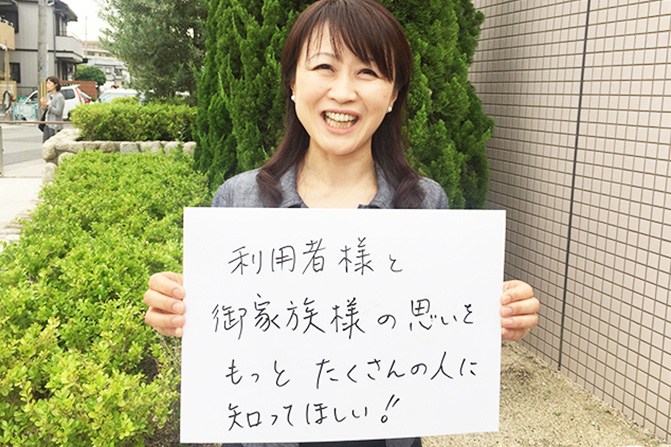 利用者様と
御家族様の思いを
もっと たくさんの人に
知ってほしい!!